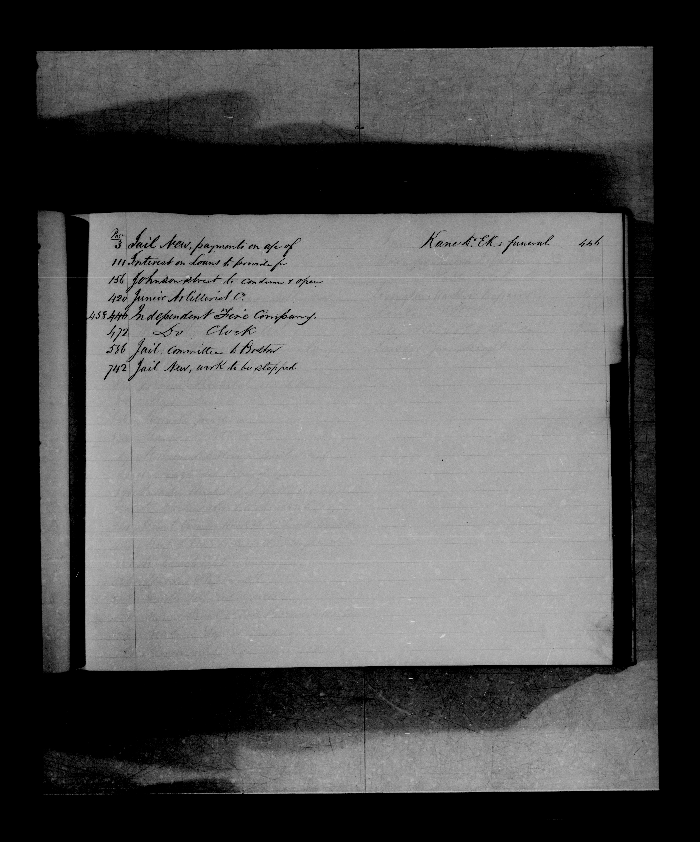 Page
3 Jail New, payments on a/c of
111 Interest on Loans to provide for
156 Johnson street to condemn & open
420 Junior Artillerist Co.
458 440 Independent Fire Company.
472 Do Clock
536 Jail, committee to Boston
742 Jail New, work to be stopped
Kane Dr. E.K.s funeral 446